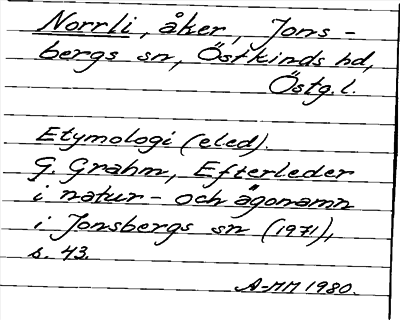 Norrli, åker, Jons-
bergs sn, Östkinds hd,
Östg.l.
Etymologi (eled).
G. Grahm, Efterleder
i natur- och ägonamn
i Jonsbergs sn (1971),
s. 43.
A-MM 1980.